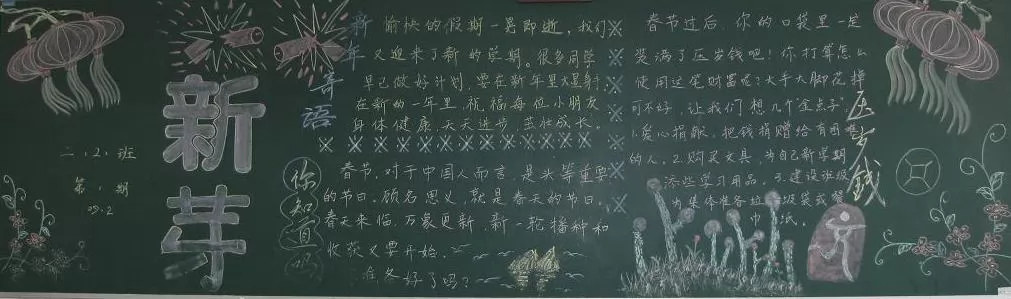 二.(2)班
第1期
09.2
新芽
新年寄语
愉快的假期一晃即逝,我们
又迎来了新的学期。很多同学
早已做好计划,要在新年里大显身
在新的一年里,祝福每位小朋友
身体健康,天天进步,茁壮成长。
你知道吗
春节,对于中国人而言,是头等重要
的节日。顾名思义,就是春天的节日。
春天来临,万象更新,新一轮播种和
收获又要开始。
准备好了吗?
春节过后,你的口袋里一定
装满了压岁钱吧!你打算怎么
使用这笔财富呢?大手大脚花掉
可不好,让我们想几个"金点子"
1.爱心捐献,把钱捐赠给有困难
的人。2.购买文具,为自己新学期
添些学习用品。3.建设班级
为集体准备垃圾袋或餐
巾纸。
压岁钱